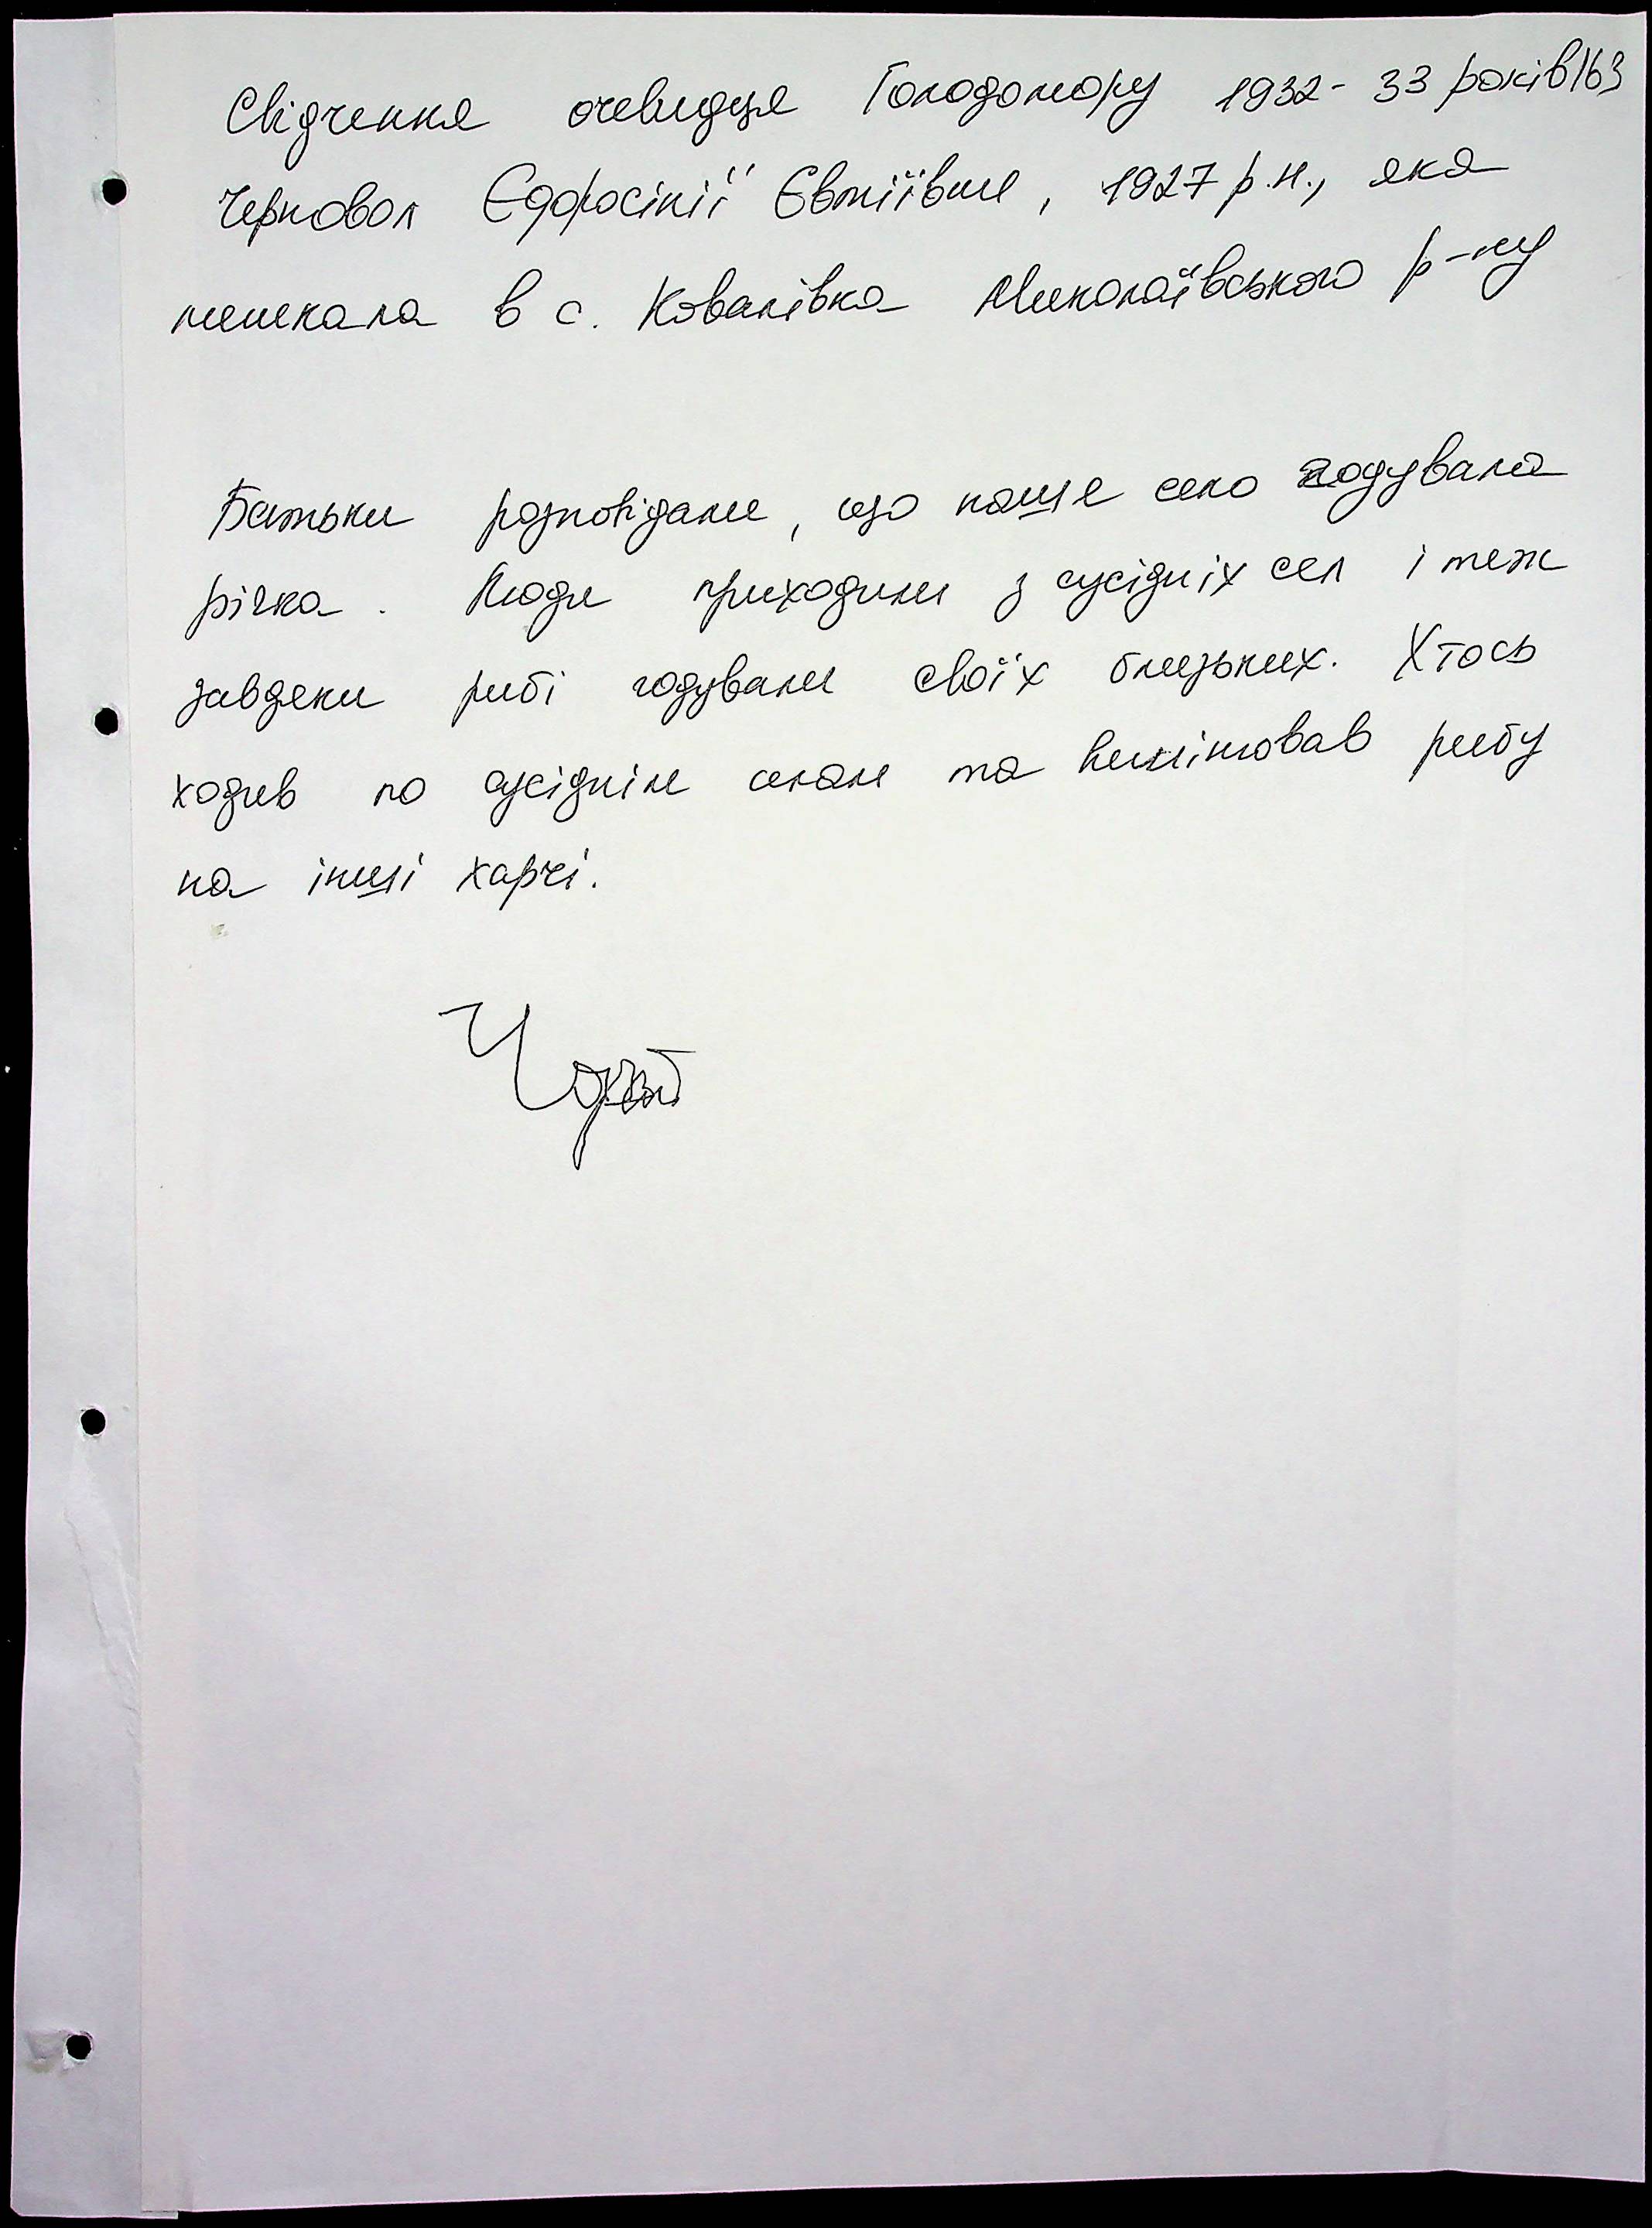 Свідчення очевидця Голодомору 1932-33 років 163
Черновол Єфросінії Євтіївни, 1927 р.н., яка
мешкала в с. Ковалівка Миколаївського р-ну
Батьки розповідали, що наше село годувала
річка. Люди приходили з сусідніх сел і теж
завдяки рибі годували своїх близьких. Хтось
ходив по сусіднім селам та вимінював рибу
на інші харчі.